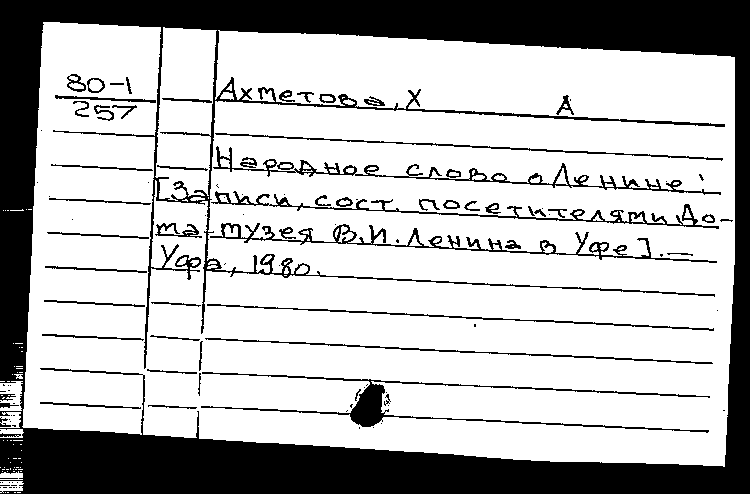 80-1
257
Ахметова, Х А
Народное слово о Ленине:
[Записи, сост. посетителями До-
ма-музея В.И.Ленина в Уфе].—
Уфа, 1980.